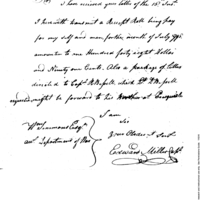 Sir,
I have received your letter of the 15th Inst
I herewith transmit a Receipt Roll being pay
for my self and men for the month of July 1796
amounts to one Hundred forty eight Dollar
and Ninety one Cents. Also a package of letters
directed to Capt
requested might be forward to his Brother at
I am
Sir
Your Obedient Servt
Edward Miller Capt
Wm Simmons Esqr
acct Department of War